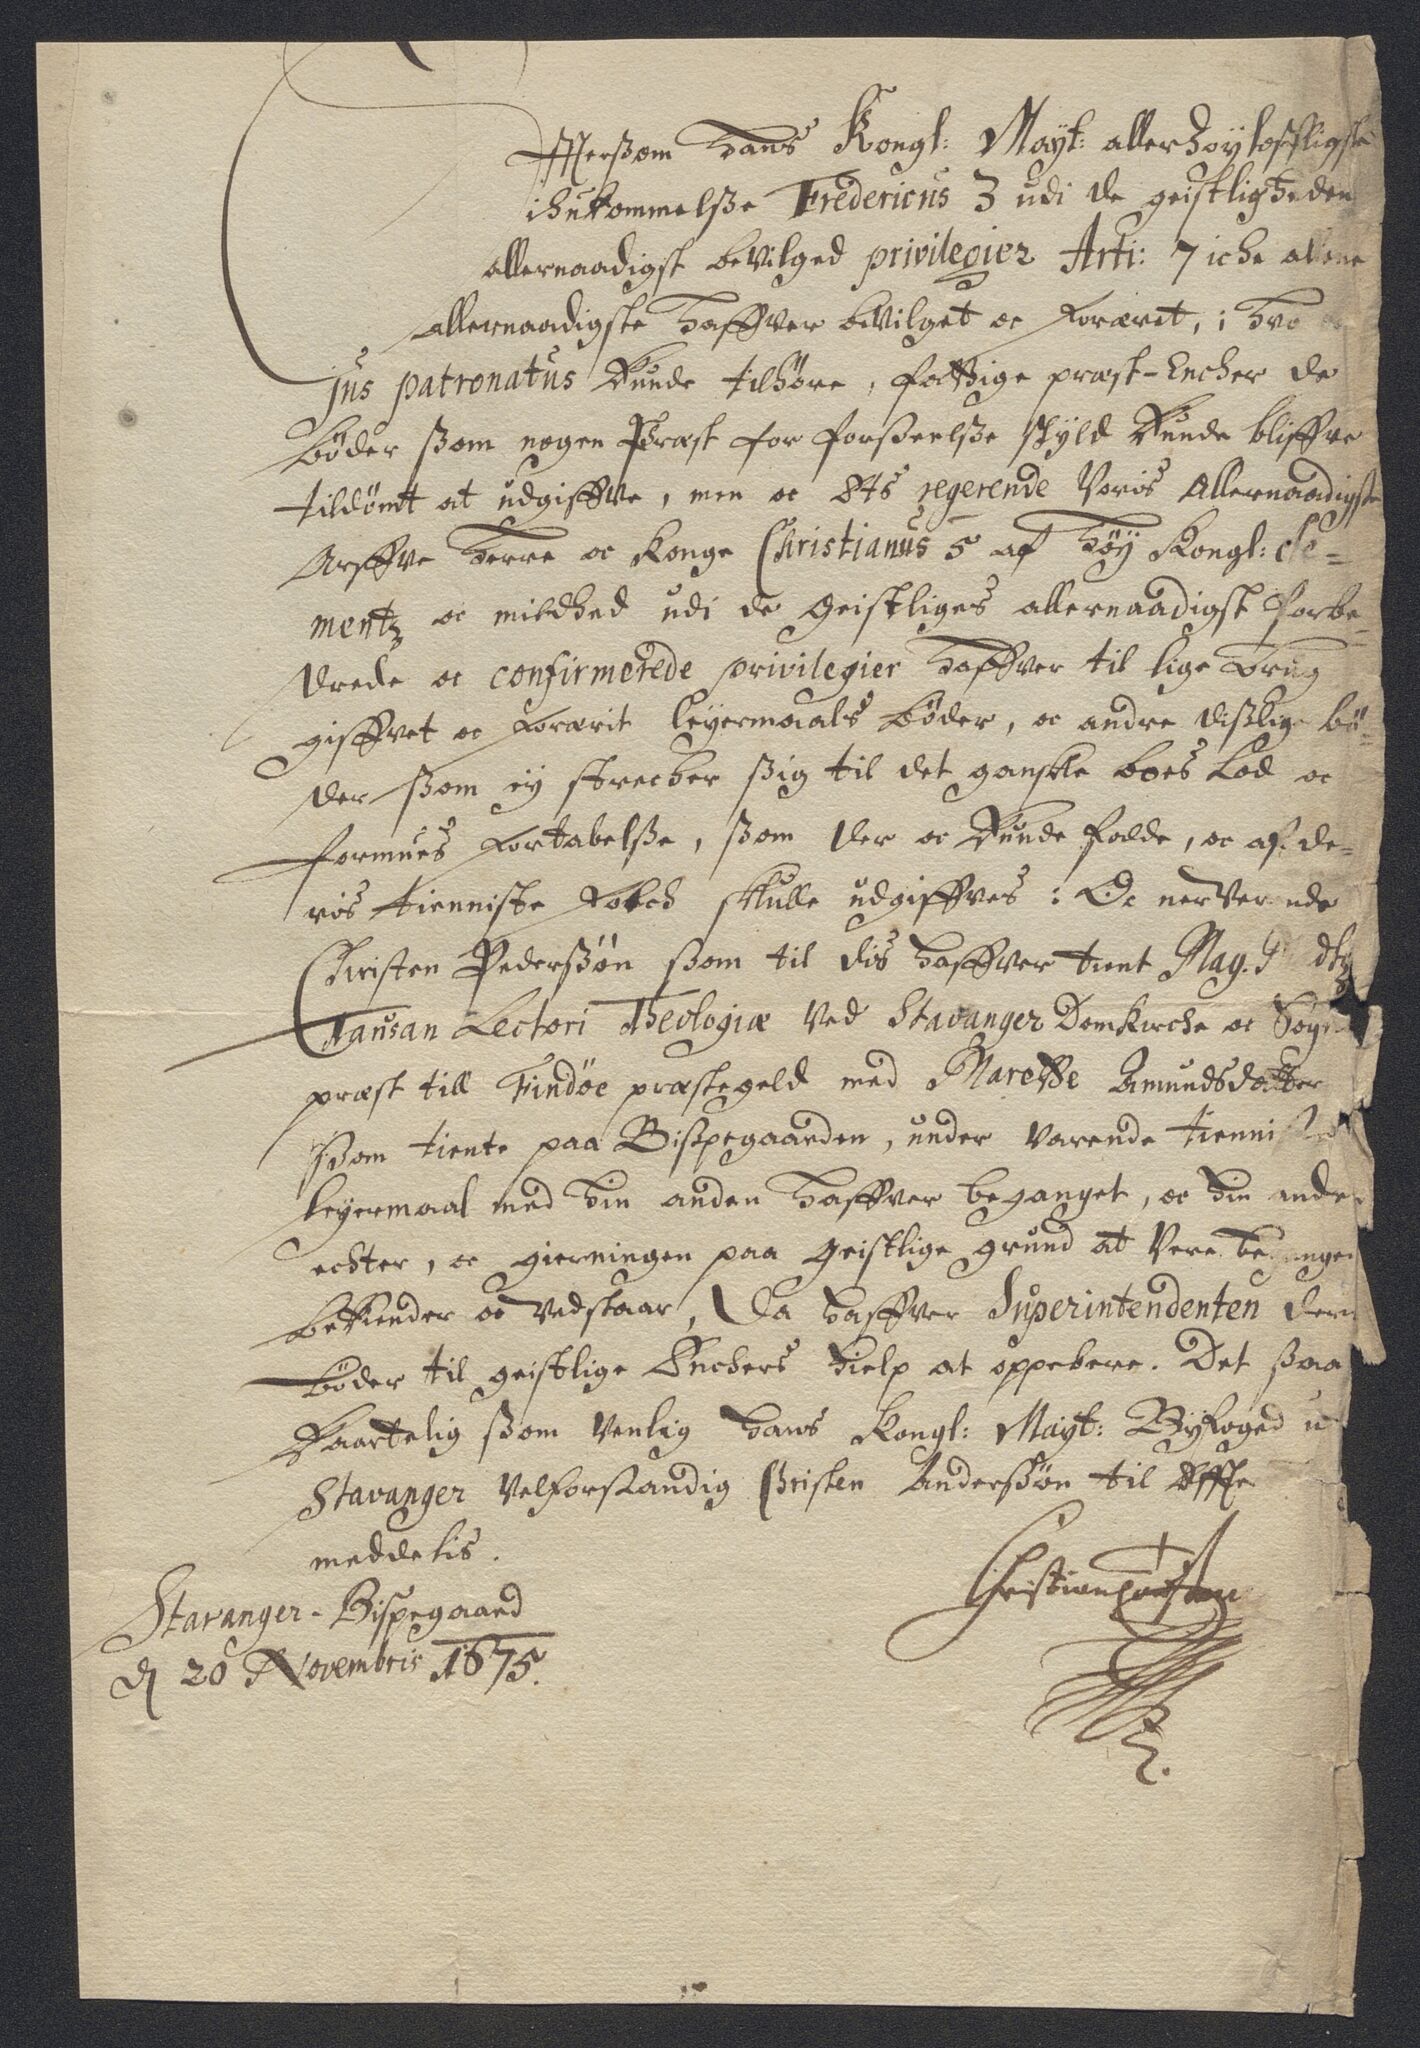 Eftersom Hans Kongl: Mayt: allerhøyloffligste
ihukommelsze Fredericus 3 udi de geistligheden
allernaadigst bevilged privilegier Arti: 7 iche allene
allernaadigste haffver bevilget oc foræret, i hvo
jus patronatus kunde tilhøre, fattige præst-Encher de
bøder szom nogen Præst for forszeelsze skyld kunde bliffve
tildømt at udgiffve, men oc 8ts regerende Voris Allernaadigste
Arffve Herre oc Konge Christianus 5 af høy Kongl: cle=
mentz oc mildhed udi de geistliges allernaadigst forbe=
drede oc confirmerede privilegier haffver til lige brug
giffvet oc forærit leyermaals bøder, oc andre diszlige bø=
der szom ey strecker szig til det gandske boes Lod oc
formues fortabelsze, szom der oc kunde falde, oc af de=
ris tienniste folch skulle udgiffves: Oc nerverende
Christen Pederszøn szom til dis haffver tient Mag.
Tausan Lectori Theologiæ ved Stavanger Domkirche oc Sogne
præst till Findøe præstegeld med Marette Amundsdatter
szom tiente paa Biszpegaarden, under varende tienniste
leyermaal med hin anden haffver beganget, oc hin anden
echter, oc gierningen paa geistlige grund at vere begangen
bekiender oc vedstaar, Da haffver Superintendenten dem
bøder til geistlige Enchers hielp at oppebere. Det szaa
kaartelig szom venlig Hans Kongl: Mayt: Byfoged u
Stavanger velforstandig Christen Anderszøn til
meddelis.
Stavanger-Bispegaard
d 20 Novembris 1675.
Christian